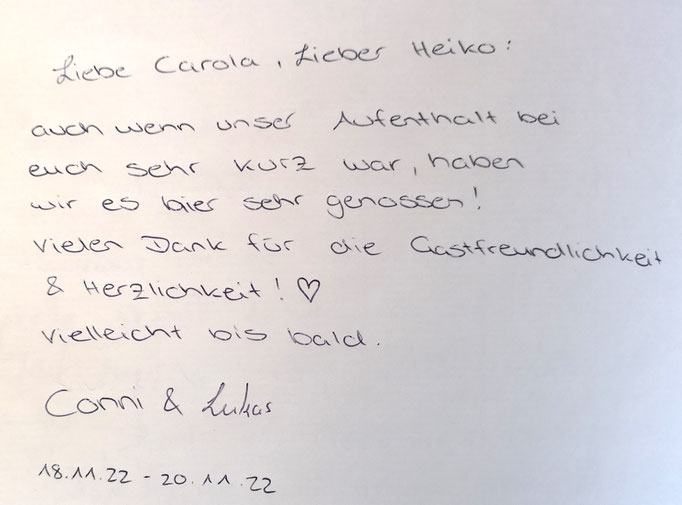 Liebe Carola, Lieber Heiko:
auch wenn unser Aufenthalt bei
euch sehr kurz war, haben
wir es hier sehr genossen!
Vielen Dank für die Gastfreundlichkeit
& Herzlichkeit! ♡
Vielleicht bis bald.
Conni & Lukas
18.11.22 - 20.11.22